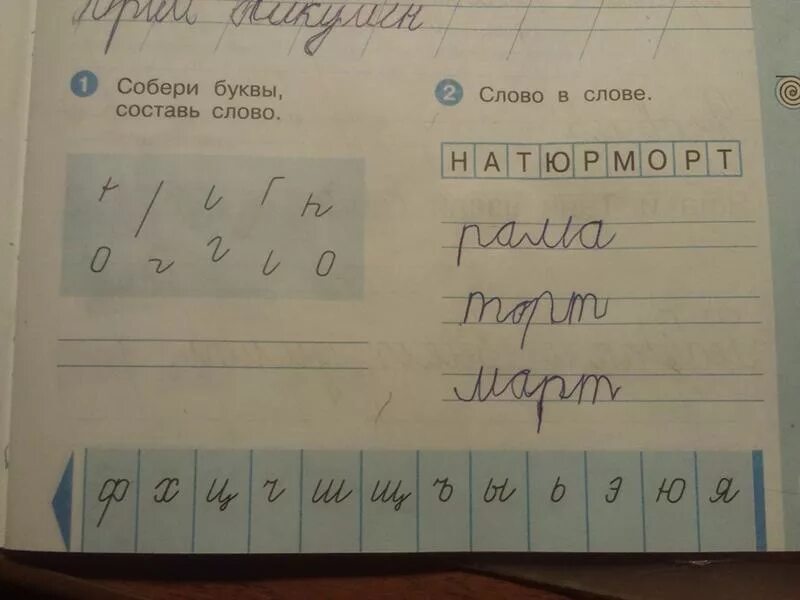 Юрий Никулин
1 Собери буквы,
составь слово.
2 Слово в слове.
НАТЮРМОРТ
рама
торт
март
ф х ц ч ш щ ъ ы ь э ю я